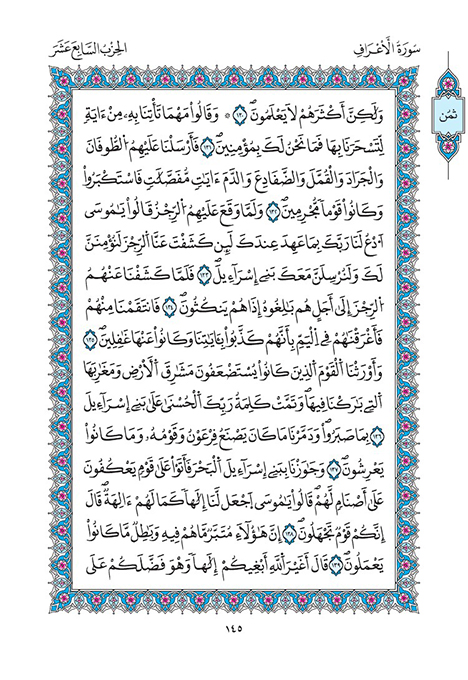 سُورَةُ الأَعْرَافِ
الحِزْبُ السَّابِعَ عَشَرَ
ثُمُن
وَلَٰكِنَّ أَكْثَرَهُمْ لَا يَعْلَمُونَ ۝١٣٠ * وَقَالُوا۟ مَهْمَا تَأْتِنَا بِهِۦ مِنْ ءَايَةٖ
لِّتَسْحَرَنَا بِهَا فَمَا نَحْنُ لَكَ بِمُؤْمِنِينَ ۝١٣١ فَأَرْسَلْنَا عَلَيْهِمُ الطُّوفَانَ
وَالْجَرَادَ وَالْقُمَّلَ وَالضَّفَادِعَ وَالدَّمَ ءَايَٰتٖ مُّفَصَّلَٰتٖ فَاسْتَكْبَرُوا۟
وَكَانُوا۟ قَوْمٗا مُّجْرِمِينَ ۝١٣٢ وَلَمَّا وَقَعَ عَلَيْهِمُ الرِّجْزُ قَالُوا۟ يَٰمُوسَى
اَدْعُ لَنَا رَبَّكَ بِمَا عَهِدَ عِندَكَ لَئِن كَشَفْتَ عَنَّا الرِّجْزَ لَنُؤْمِنَنَّ
لَكَ وَلَنُرْسِلَنَّ مَعَكَ بَنِي إِسْرَآءِيلَ ۝١٣٣ فَلَمَّا كَشَفْنَا عَنْهُمُ
الرِّجْزَ إِلَىٰ أَجَلٍ هُم بَٰلِغُوهُ إِذَا هُمْ يَنكُثُونَ ۝١٣٤ فَانتَقَمْنَا مِنْهُمْ
فَأَغْرَقْنَٰهُمْ فِي الْيَمِّ بِأَنَّهُمْ كَذَّبُوا۟ بِـَٔايَٰتِنَا وَكَانُوا۟ عَنْهَا غَٰفِلِينَ ۝١٣٥
وَأَوْرَثْنَا الْقَوْمَ الَّذِينَ كَانُوا۟ يُسْتَضْعَفُونَ مَشَٰرِقَ الْأَرْضِ وَمَغَٰرِبَهَا
الَّتِي بَٰرَكْنَا فِيهَا وَتَمَّتْ كَلِمَةُ رَبِّكَ الْحُسْنَىٰ عَلَىٰ بَنِي إِسْرَآءِيلَ
بِمَا صَبَرُوا۟ وَدَمَّرْنَا مَا كَانَ يَصْنَعُ فِرْعَوْنُ وَقَوْمُهُۥ وَمَا كَانُوا۟
يَعْرِشُونَ ۝١٣٧ وَجَٰوَزْنَا بِبَنِي إِسْرَآءِيلَ الْبَحْرَ فَأَتَوْا۟ عَلَىٰ قَوْمٖ يَعْكُفُونَ
عَلَىٰ أَصْنَامٖ لَّهُمْ قَالُوا۟ يَٰمُوسَى اَجْعَل لَّنَا إِلَٰهٗا كَمَا لَهُمْ ءَالِهَةٞ قَالَ
إِنَّكُمْ قَوْمٞ تَجْهَلُونَ ۝١٣٨ إِنَّ هَٰؤُلَآءِ مُتَبَّرٞ مَّا هُمْ فِيهِ وَبَٰطِلٞ مَّا كَانُوا۟
يَعْمَلُونَ ۝١٣٩ قَالَ أَغَيْرَ اللَّهِ أَبْغِيكُمْ إِلَٰهٗا وَهُوَ فَضَّلَكُمْ عَلَى
١٤٥